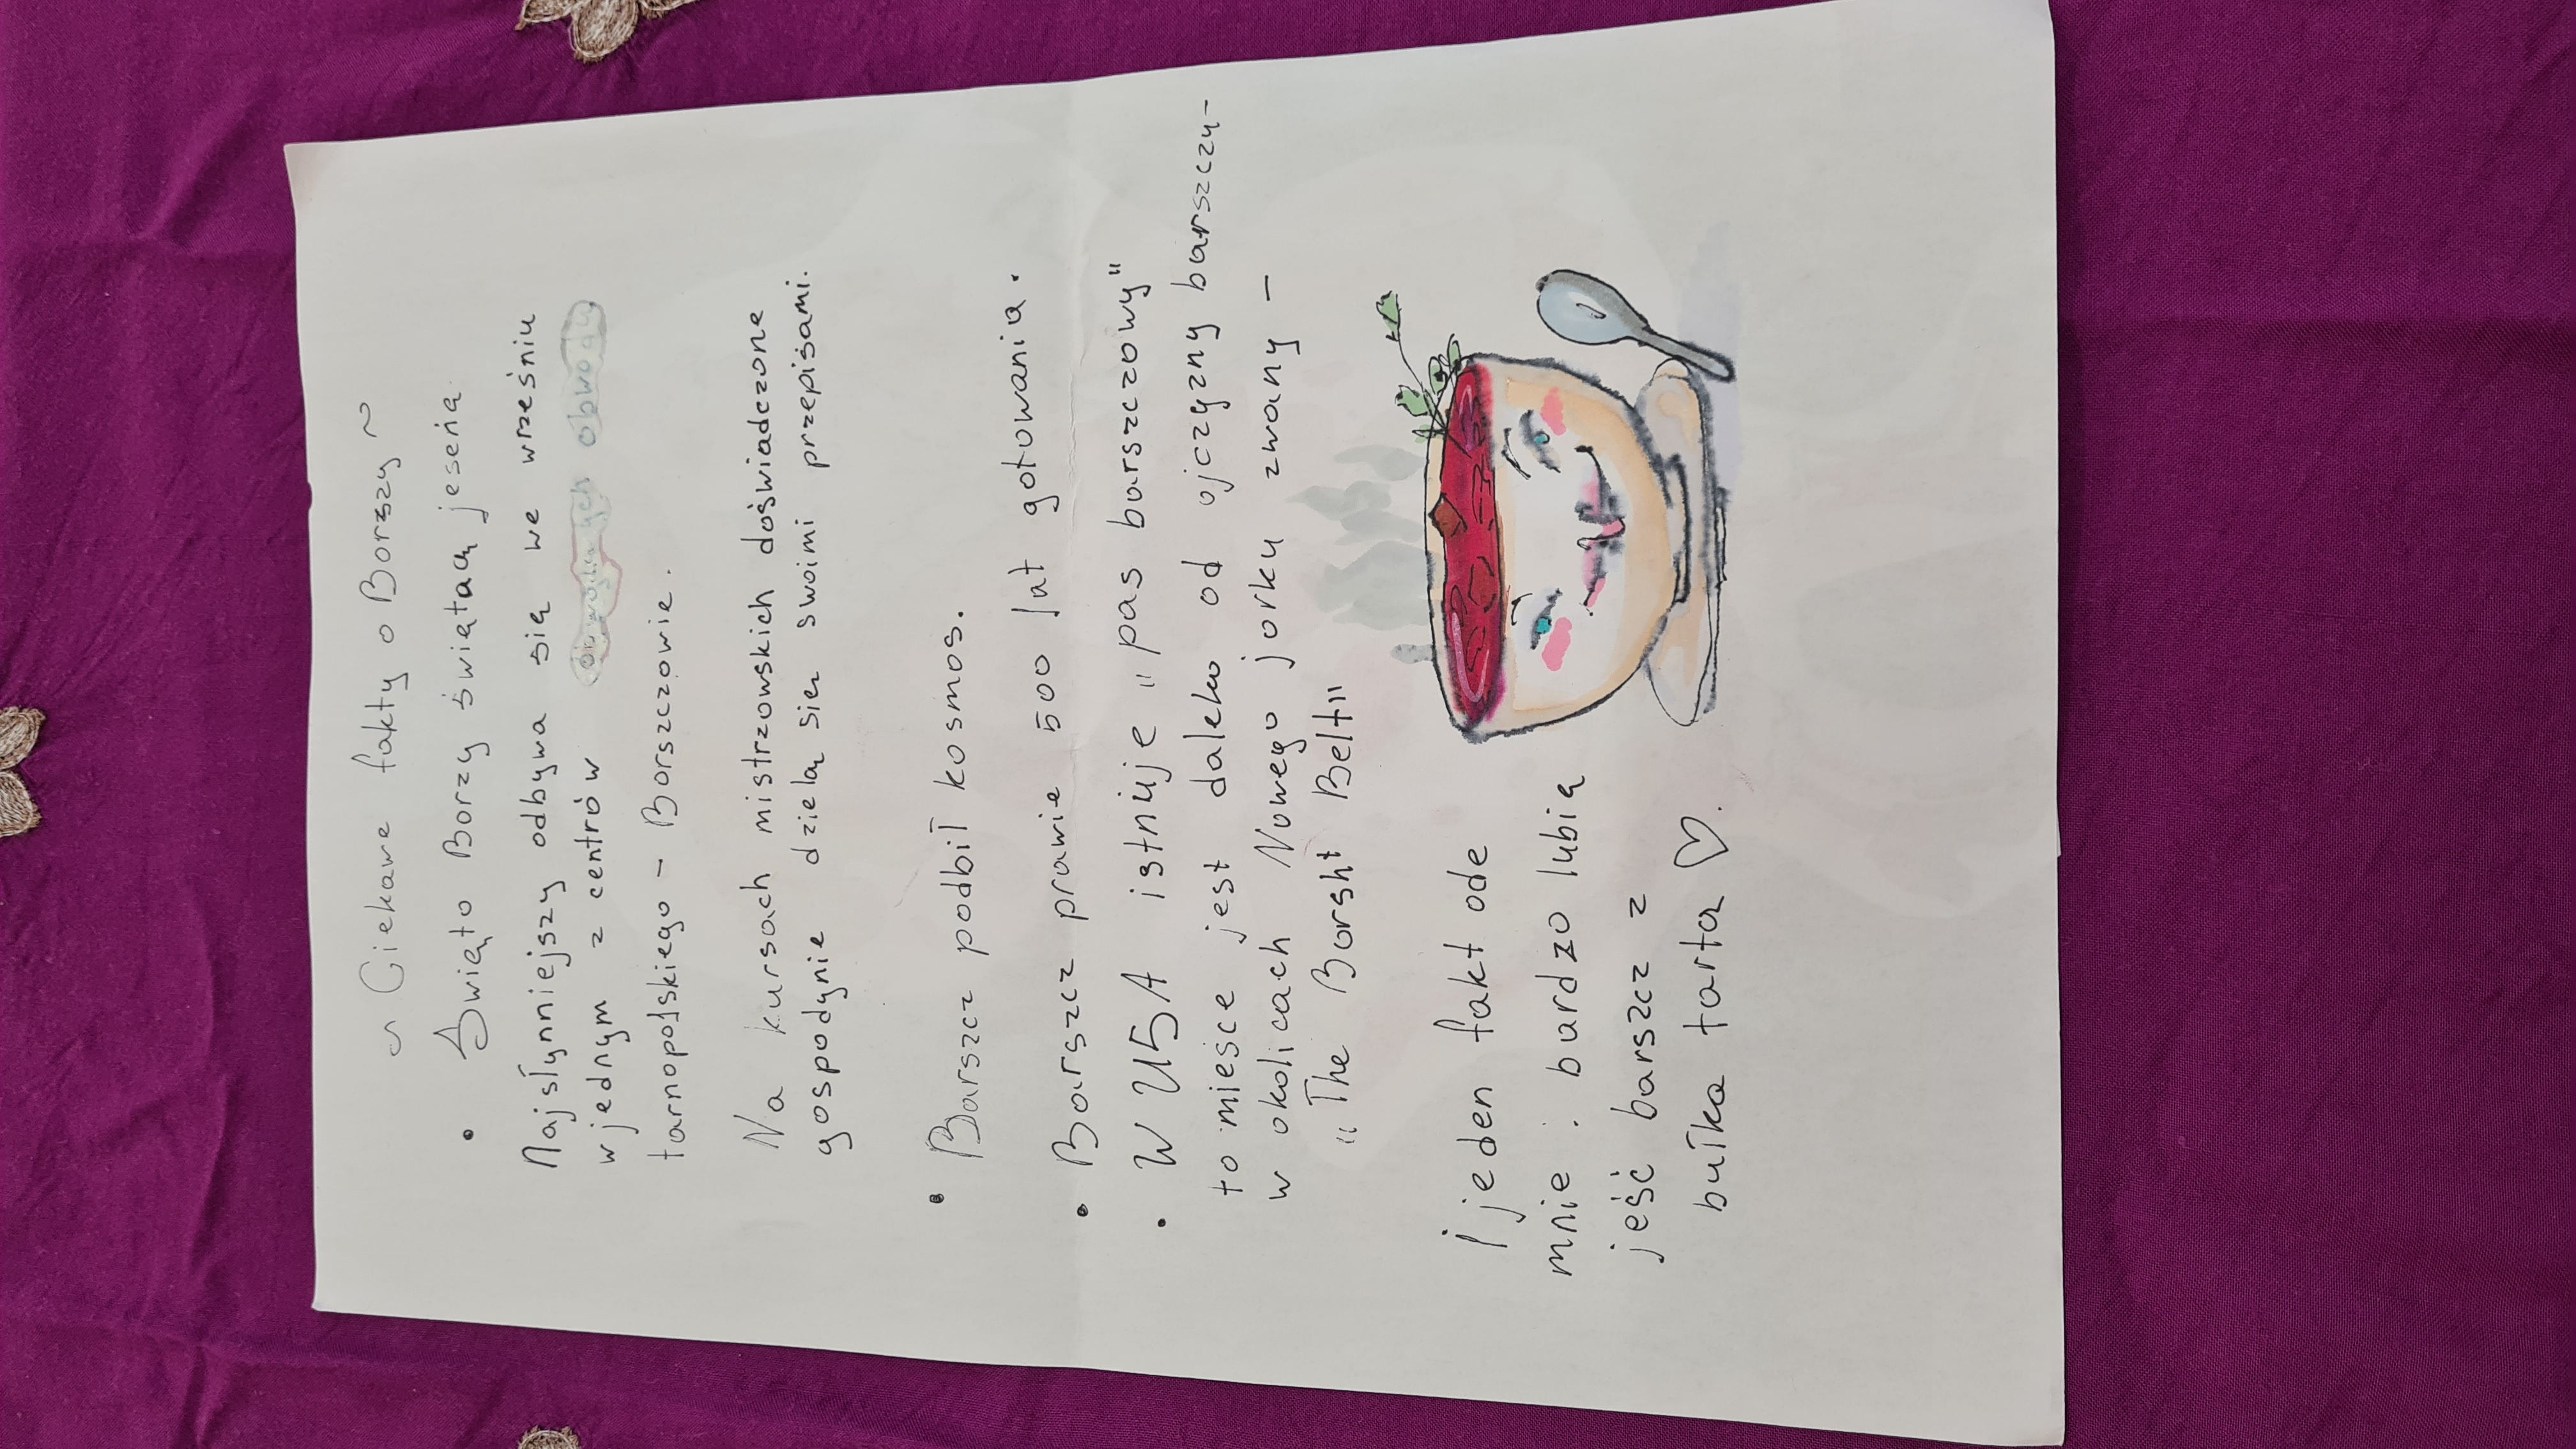 ~ Ciekawe fakty o Borszy ~
• Święto Borzy świętają jesenią.
Najsłynniejszy odbywa się we wrześniu
w jednym z centrów obwodu
tarnopolskiego - Borszczowie.
Na kursach mistrzowskich doświadczone
gospodynie dzielą się swoimi przepisami.
• Barszcz podbił kosmos.
• Barszcz prawie 500 lat gotowania.
• W USA istnieje "pas barszczowy"
to miejsce jest daleko od ojczyzny barszczu-
w okolicach Nowego jorku zwany -
"The Borsht Belt"
I jeden fakt ode
mnie : bardzo lubię
jeść barszcz z
bułką tartą ♡.